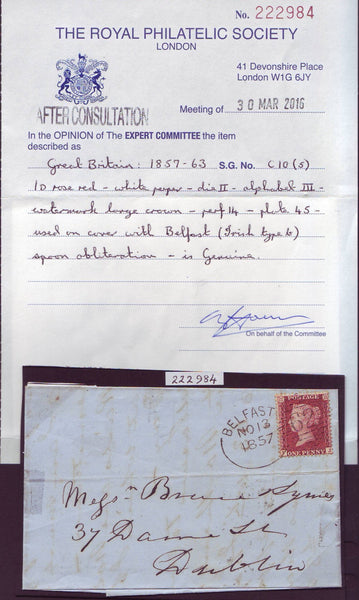 No. 222984
THE ROYAL PHILATELIC SOCIETY
LONDON
41 Devonshire Place
London W1G 6JY
AFTER CONSULTATION
Meeting of 30 MAR 2016
In the OPINION of The EXPERT COMMITTEE the item
described as
Great Britain: 1857-63 S.G. No. C10(5)
1D rose red - white paper - die II - alphabet III -
watermark large crown - perf 14 - plate 45 -
used on cover with Belfast (Irish type 6)
spoon obliteration - is Genuine.
On behalf of the Committee
222984
BELFAST
NO 13
1857
POSTAGE
ONE PENNY
Messrs Bruce Symes
37 Dame St
Dublin